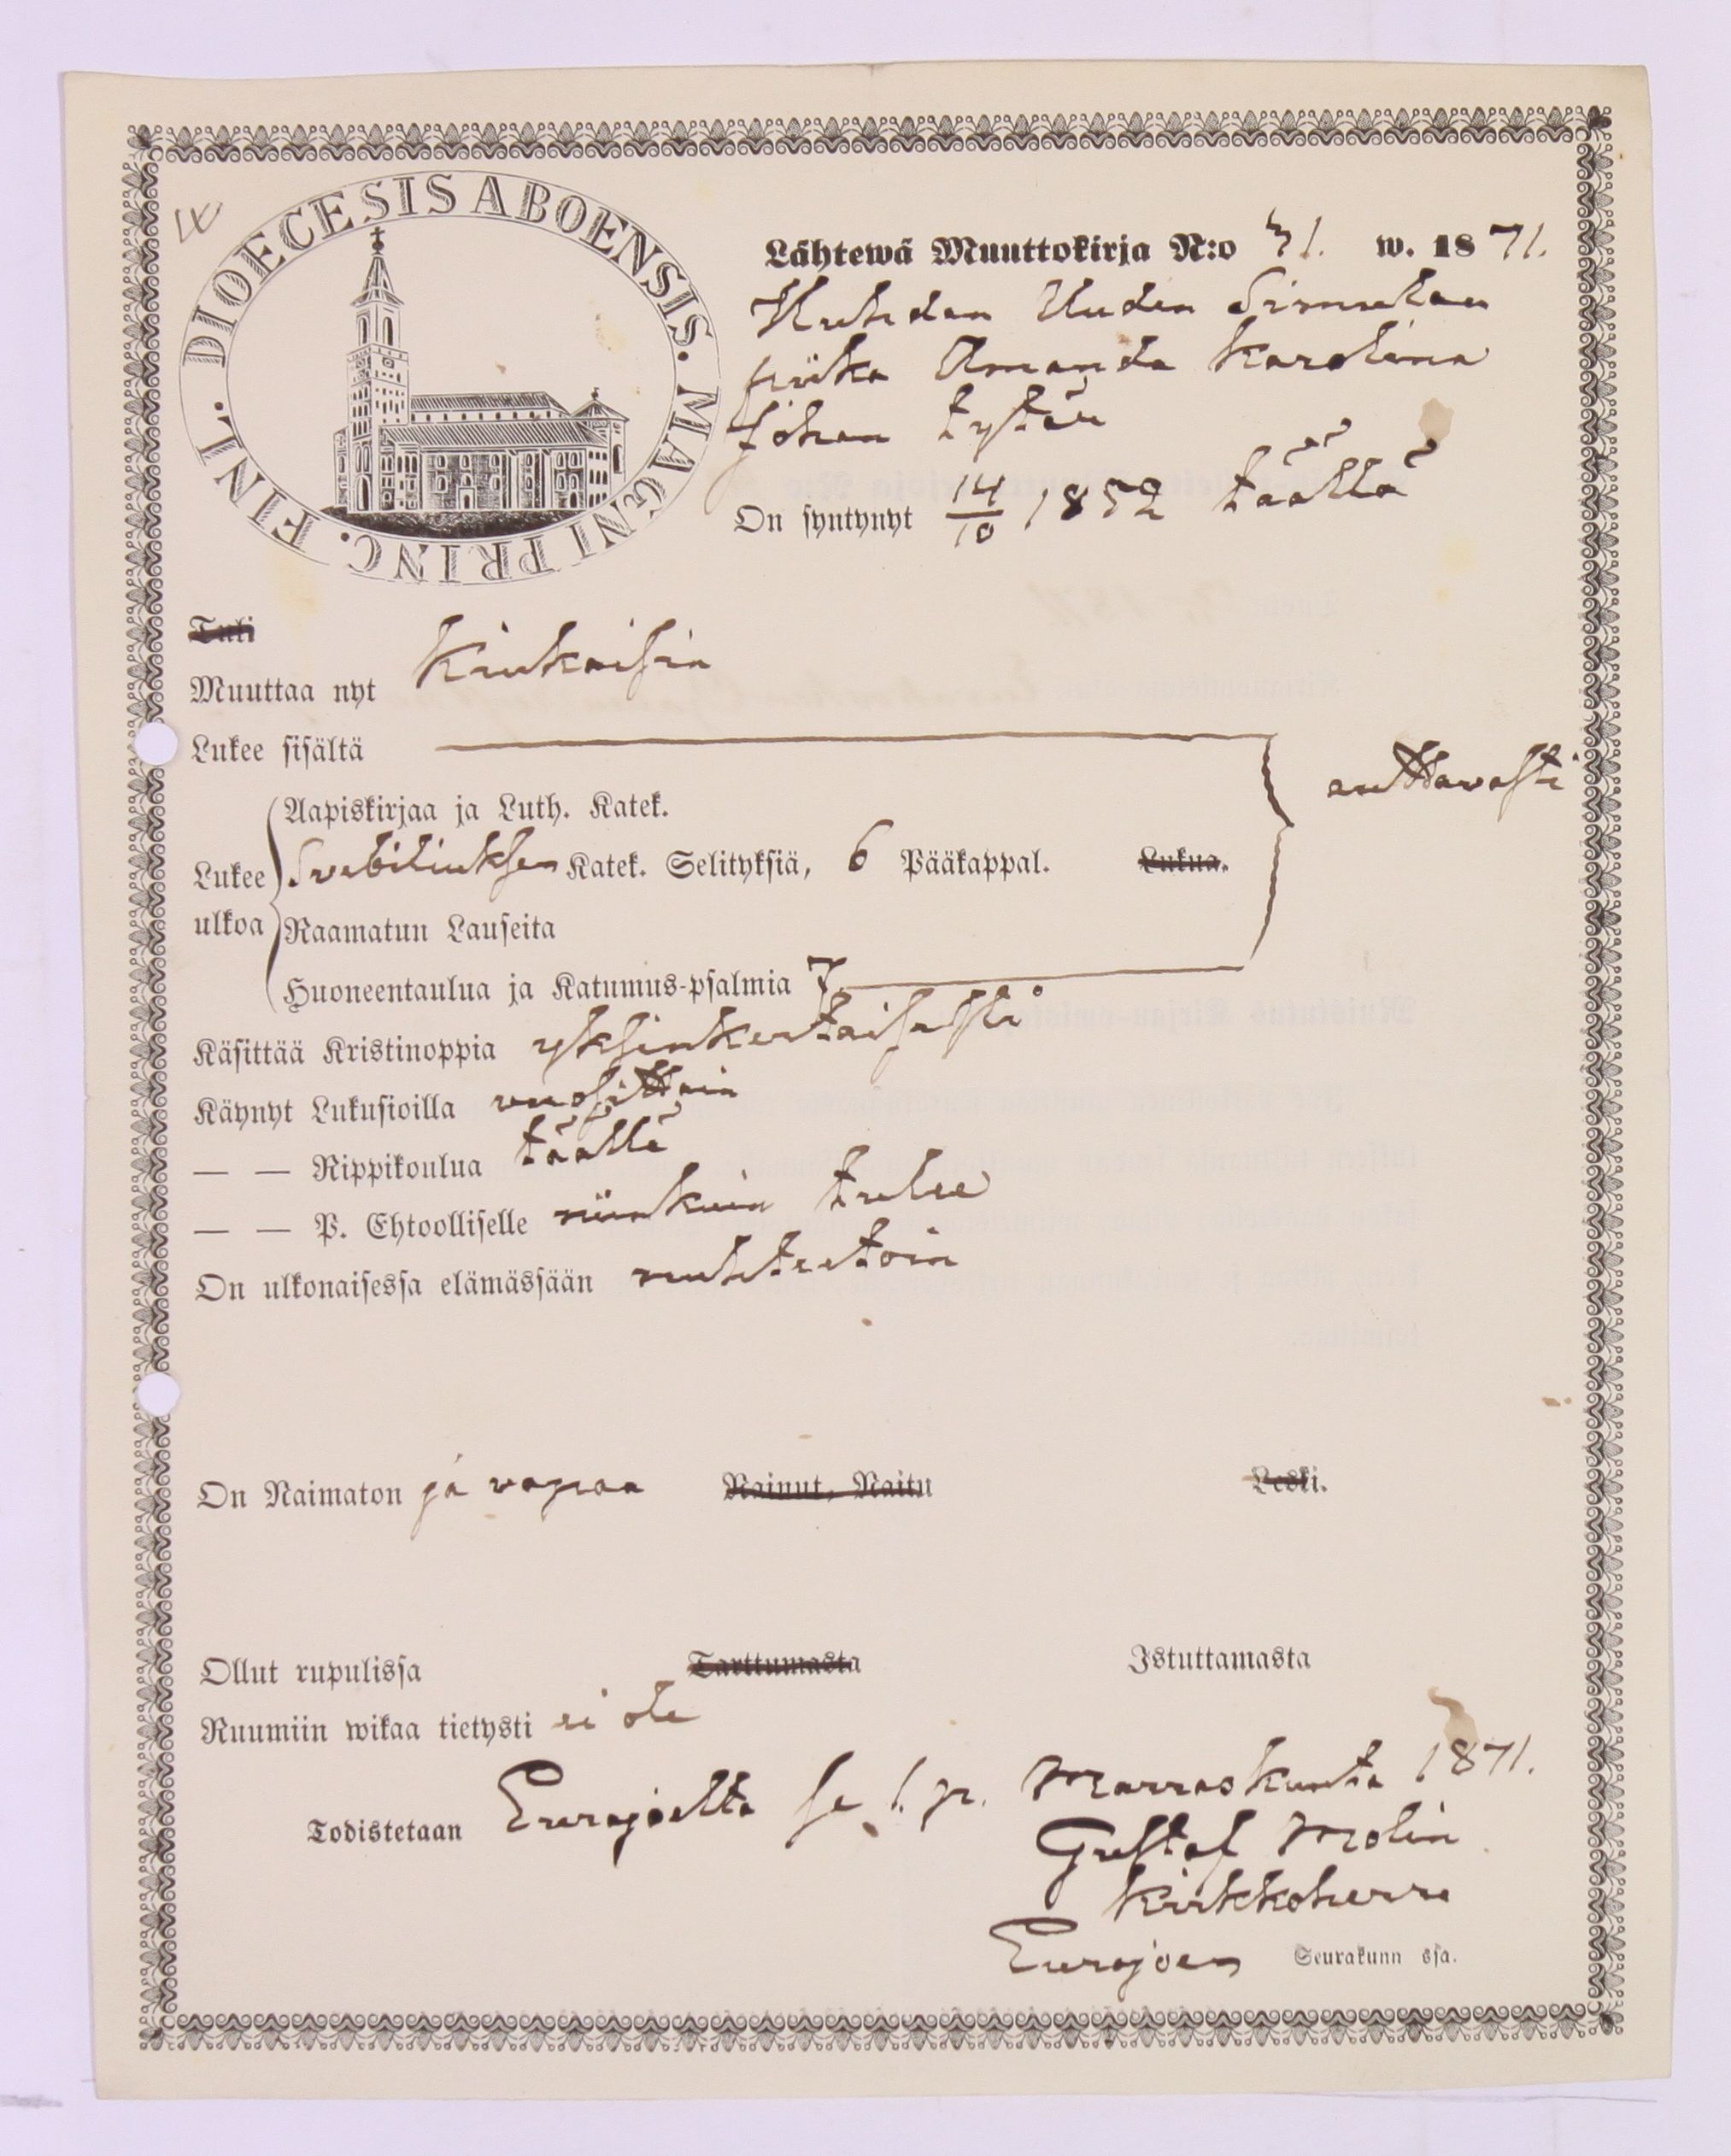 DIOECESIS ABOENSIS. MAGNI PRINC. FINL.
Lähtewä Muuttokirja N:o 31. w. 1871.
Huhdan Uuden Simulan
piika Amanda Karolina
Johan tytär
On syntynyt 14/10 1852 täällä
Tuli
Muuttaa nyt Kiukaisiin
Lukee sisältä
auttawasti
Aapiskirjaa ja Luth. Katek.
Lukee Svebiliuksen Katek. Selityksiä, 6 Pääkappal. Lukua.
ulkoa Raamatun Lauseita
Huoneentaulua ja Katumus-psalmia 7
Käsittää Kristinoppia yksinkertaisesti
Käynyt Lukusioilla vuosittain
— — Rippikoulua täällä
— — P. Ehtoolliselle niinkuin tulee
On ulkonaisessa elämässään nuhteetoin
On Naimaton ja vapaa Nainut, Naitu Leski.
Ollut rupulissa Tarttumasta Istuttamasta
Ruumiin wikaa tietysti ei ole
Todistetaan Eurajoelta se 1. p. Marraskuuta 1871.
Gustaf Molin
Kirkkoherra
Eurajoen Seurakunn ssa.